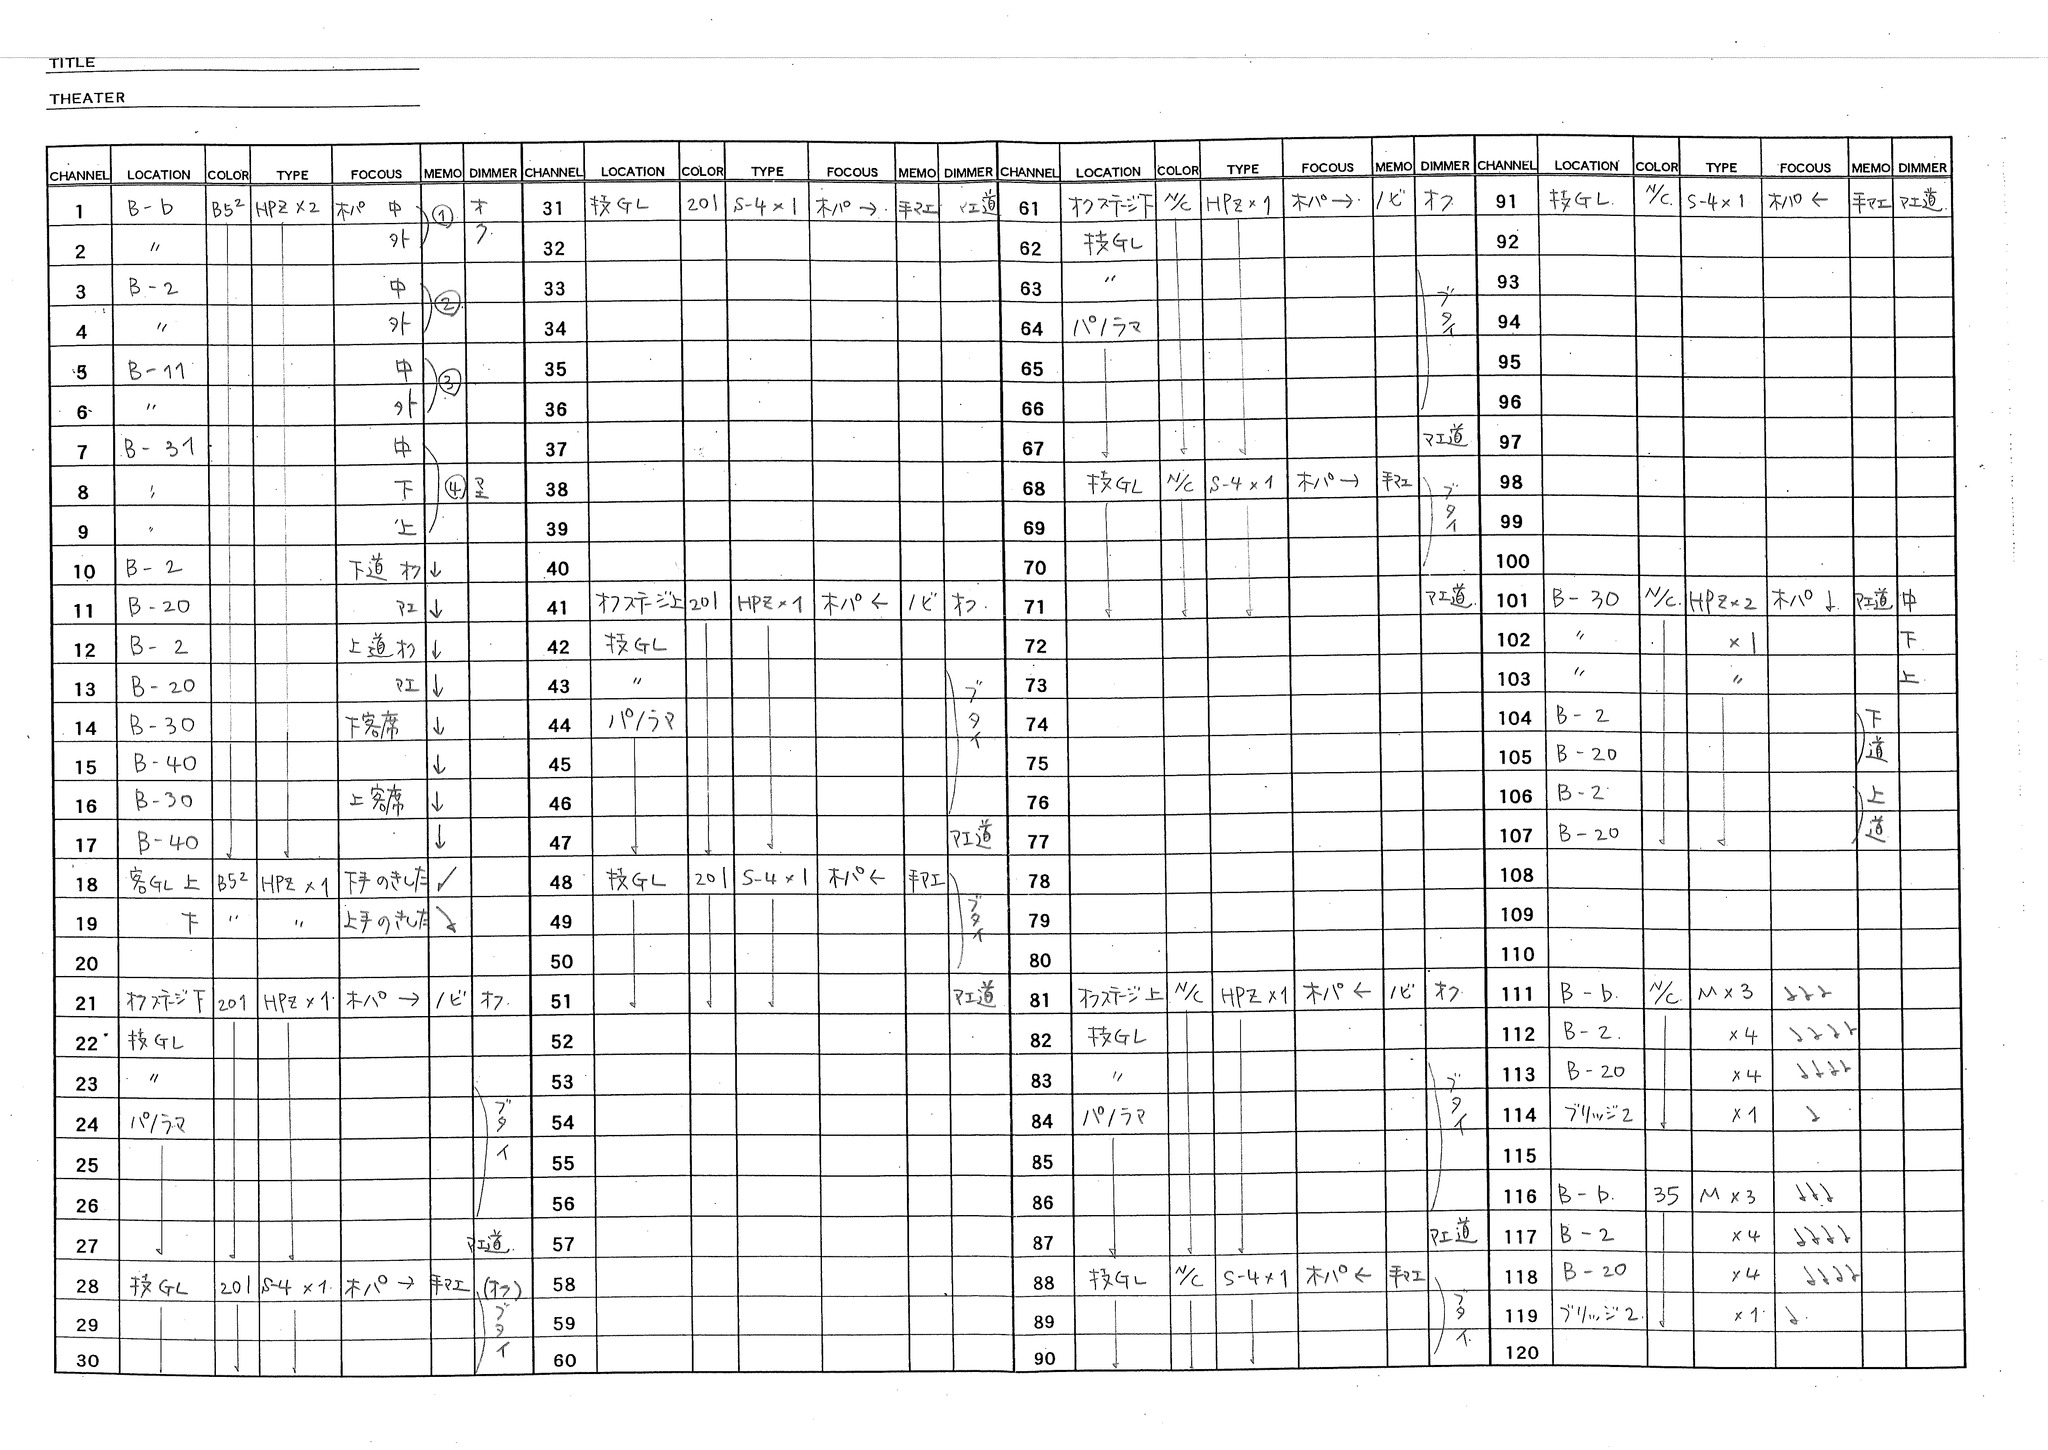 TITLE
THEATER
CHANNEL LOCATION COLOR TYPE FOCOUS MEMO DIMMER
1 B-b B5² HPZ×2 木パ 中 ① オ
2 〃 外 フ
3 B-2 中 ②
4 〃 外
5 B-11 中 ③
6 〃 外
7 B-31 中
8 〃 下 ④ マエ
9 〃 上
10 B-2 下道 オク ↓
11 B-20 マエ ↓
12 B-2 上道 オク ↓
13 B-20 マエ ↓
14 B-30 下客席 ↓
15 B-40 ↓
16 B-30 上客席 ↓
17 B-40 ↓
18 客GL 上 B5² HPZ×1 下手のきした ↙
19 下 〃 〃 上手のきした ↘
20
21 オフステージ下 201 HPZ×1 木パ → ノビ オク
22 技GL
23 〃 ブタイ
24 パノラマ
25
26
27 マエ道
28 技GL 201 S-4×1 木パ → 手マエ (オク)
29 ブタイ
30
CHANNEL LOCATION COLOR TYPE FOCOUS MEMO DIMMER
31 技GL 201 S-4×1 木パ → 手マエ マエ道
32
33
34
35
36
37
38
39
40
41 オフステージ上 201 HPZ×1 木パ ← ノビ オク
42 技GL
43 〃 ブタイ
44 パノラマ
45
46
47 マエ道
48 技GL 201 S-4×1 木パ ← 手マエ
49 ブタイ
50
51 マエ道
52
53
54
55
56
57
58
59
60
CHANNEL LOCATION COLOR TYPE FOCOUS MEMO DIMMER
61 オフステージ下 N/C HPZ×1 木パ → ノビ オク
62 技GL
63 〃 ブタイ
64 パノラマ
65
66
67 マエ道
68 技GL N/C S-4×1 木パ → 手マエ
69 ブタイ
70
71 マエ道
72
73
74
75
76
77
78
79
80
81 オフステージ上 N/C HPZ×1 木パ ← ノビ オク
82 技GL
83 〃 ブタイ
84 パノラマ
85
86
87 マエ道
88 技GL N/C S-4×1 木パ ← 手マエ
89 ブタイ
90
CHANNEL LOCATION COLOR TYPE FOCOUS MEMO DIMMER
91 技GL N/C S-4×1 木パ ← 手マエ マエ道
92
93
94
95
96
97
98
99
100
101 B-30 N/C HPZ×2 木パ ↓ マエ道 中
102 〃 ×1 下
103 〃 〃 上
104 B-2 下
105 B-20 道
106 B-2 上
107 B-20 道
108
109
110
111 B-b N/C M×3 ↓↓↓
112 B-2 ×4 ↓↓↓↓
113 B-20 ×4 ↓↓↓↓
114 ブリッジ2 ×1 ↓
115
116 B-b 35 M×3 ↓↓↓
117 B-2 ×4 ↓↓↓↓
118 B-20 ×4 ↓↓↓↓
119 ブリッジ2 ×1 ↓
120